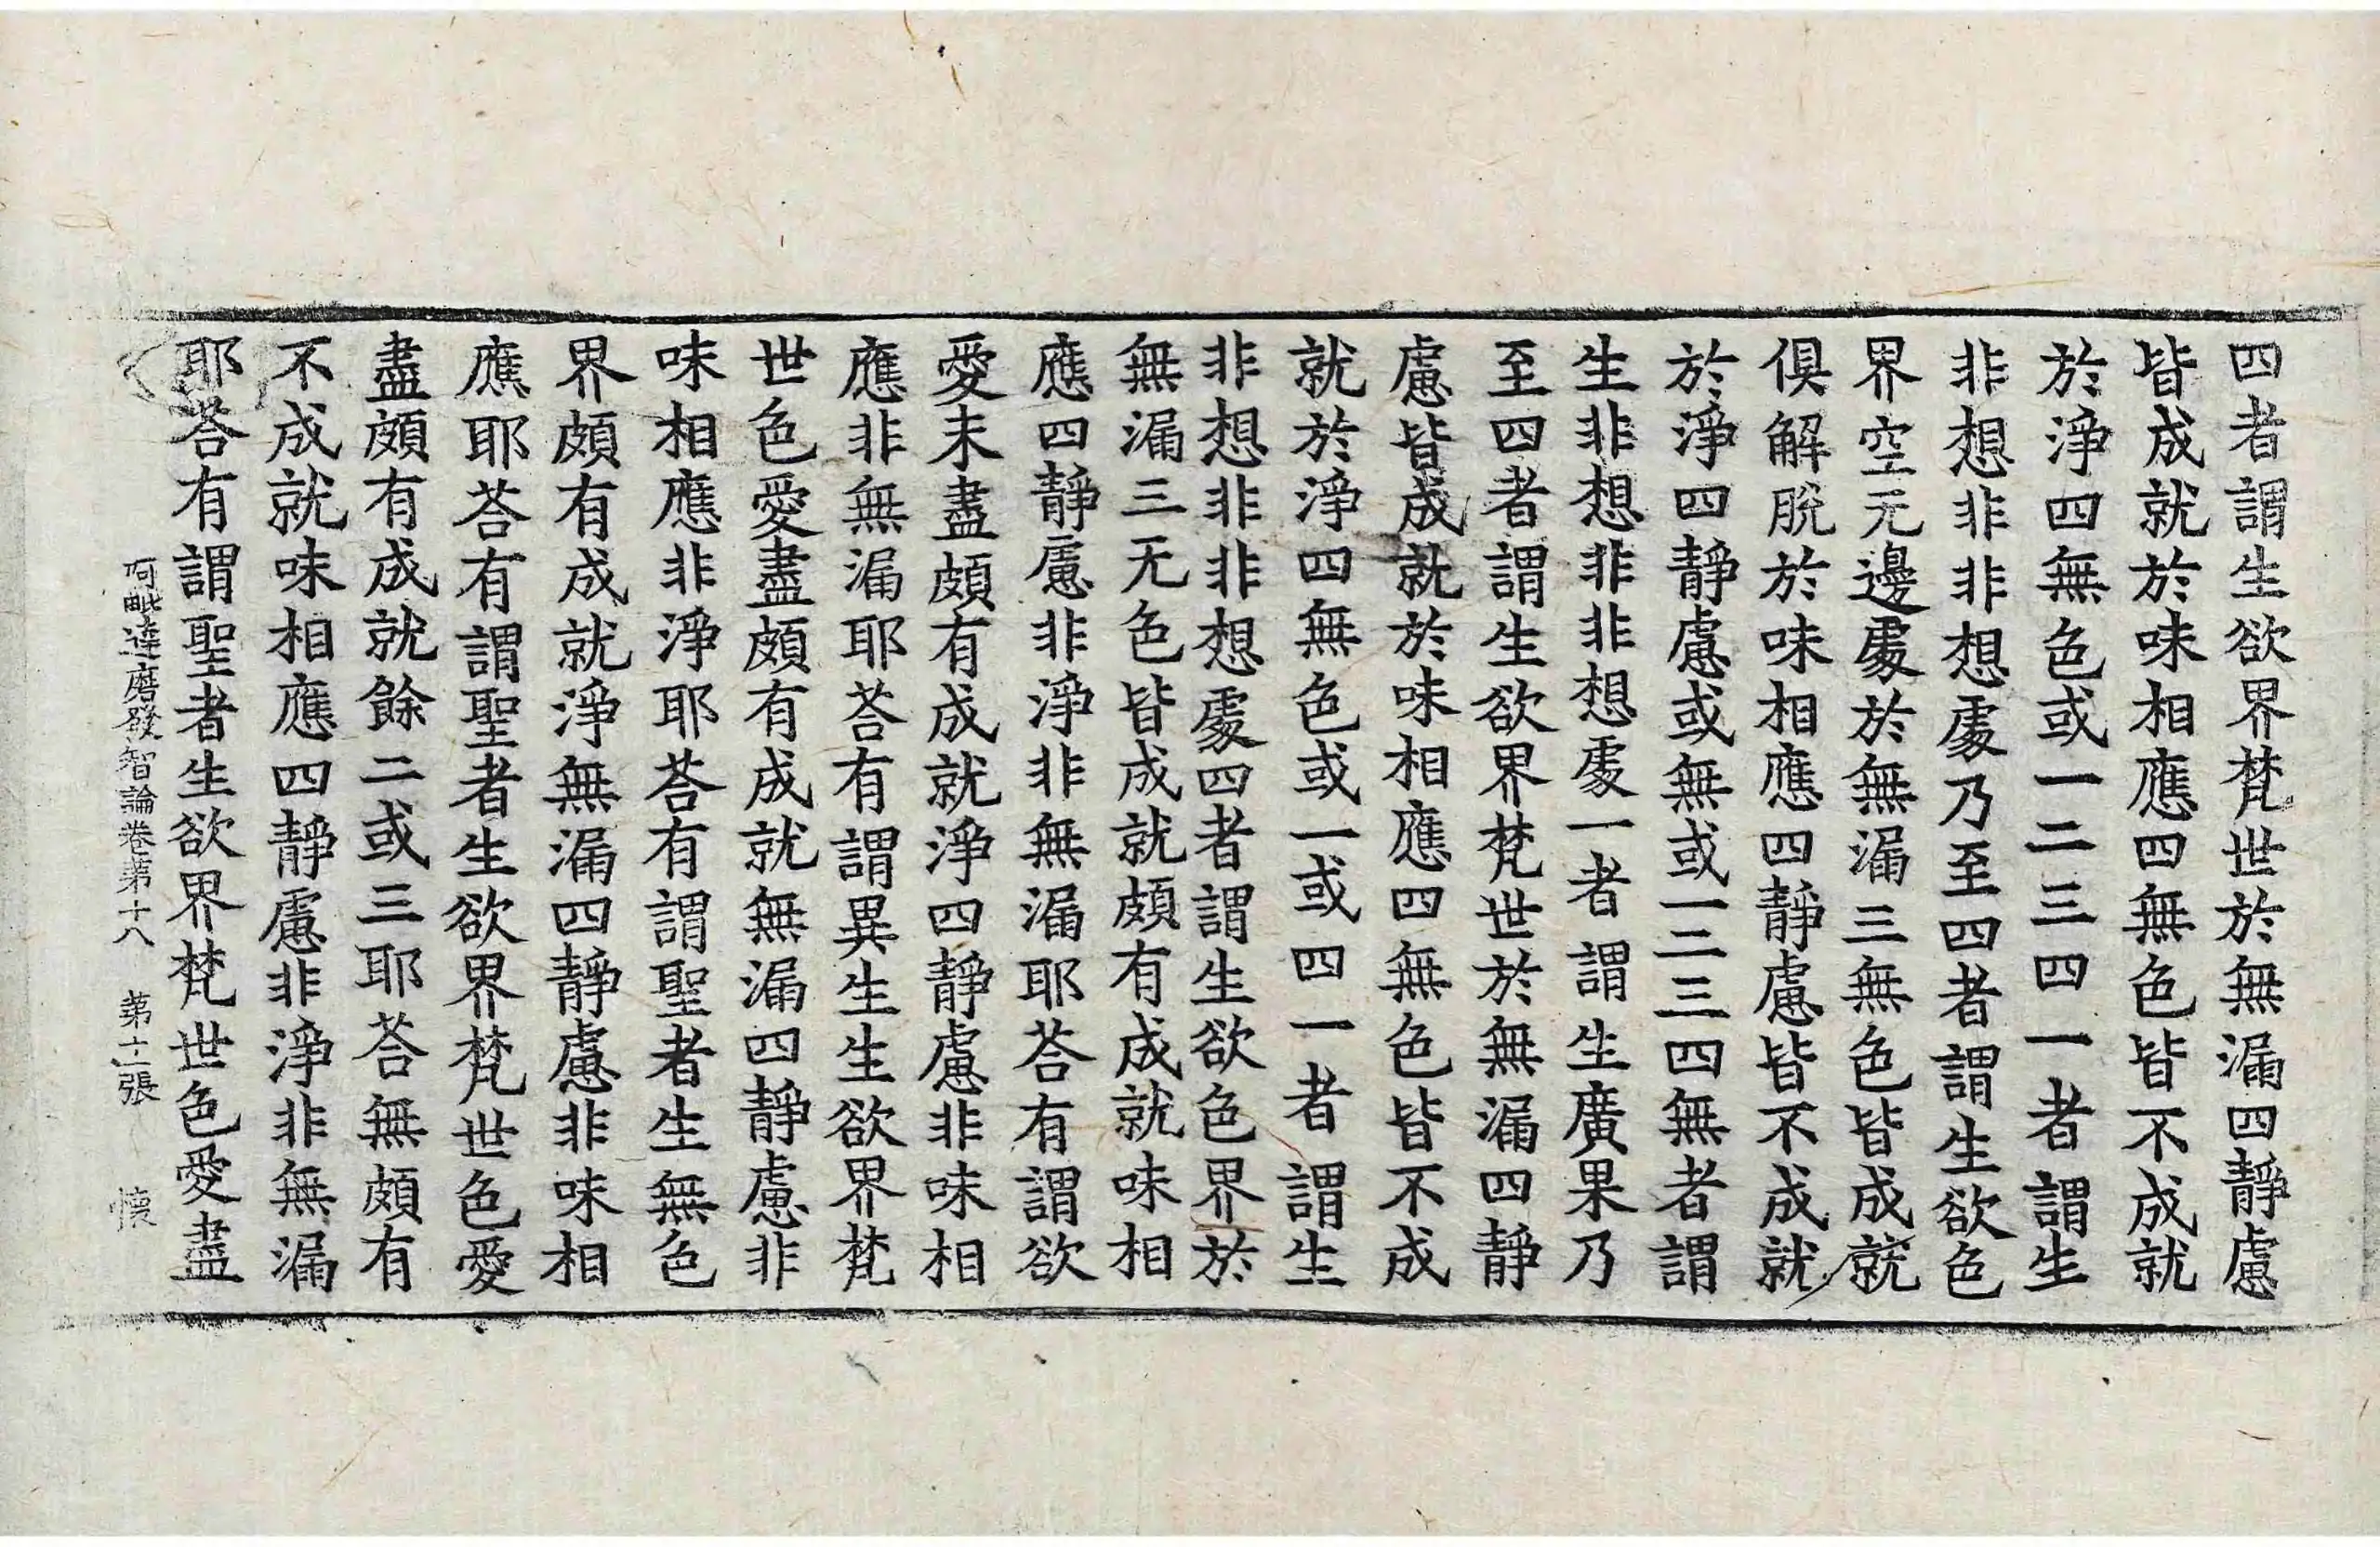 四者謂生欲界梵世於無漏四靜慮
皆成就於味相應四無色皆不成就
於淨四無色或一二三四一者謂生
非想非非想處乃至四者謂生欲色
界空元邊處於無漏三無色皆成就
俱解脫於味相應四靜慮皆不成就
於淨四靜慮或無或一二三四無者謂
生非想非非想處一者謂生廣果乃
至四者謂生欲界梵世於無漏四靜
慮皆成就於味相應四無色皆不成
就於淨四無色或一或四一者謂生
非想非非想處四者謂生欲色界於
無漏三无色皆成就頗有成就味相
應四靜慮非淨非無漏耶荅有謂欲
愛未盡頗有成就淨四靜慮非味相
應非無漏耶荅有謂異生生欲界梵
世色愛盡頗有成就無漏四靜慮非
味相應非淨耶荅有謂聖者生無色
界頗有成就淨無漏四靜慮非味相
應耶荅有謂聖者生欲界梵世色愛
盡頗有成就餘二或三耶荅無頗有
不成就味相應四靜慮非淨非無漏
耶荅有謂聖者生欲界梵世色愛盡
阿毗達磨發智論卷第十八 第十二張 懷